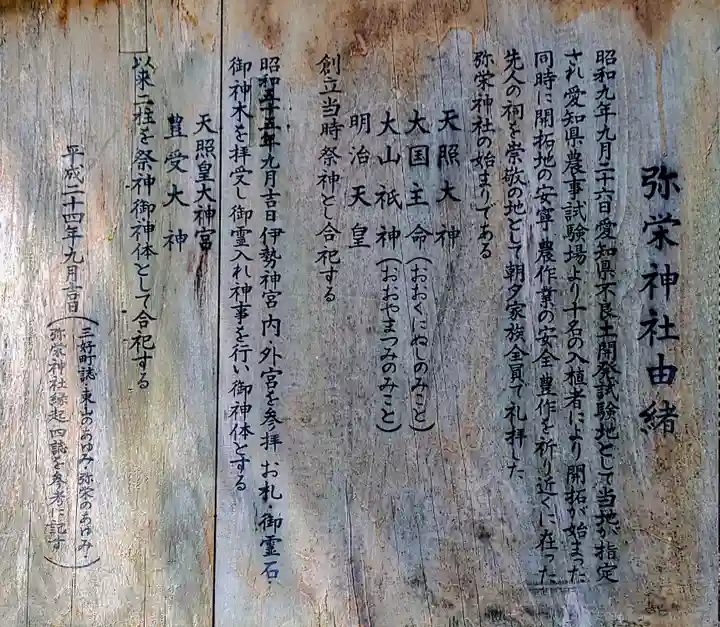 弥栄神社由緒
昭和九年九月二十六日愛知県不良土開発試験地として当地が指定
され愛知県農事試験場より十名の入植者により開拓が始まった
同時に開拓地の安寧・農作業の安全・豊作を祈り近くに在った
先人の祠を崇敬の地として朝夕家族全員で礼拝した
弥栄神社の始まりである
天照大神
大国主命(おおくにぬしのみこと)
大山祇神(おおやまつみのみこと)
明治天皇
創立当時祭神とし合祀する
昭和五十五年九月吉日伊勢神宮内・外宮を参拝お札・御霊石・
御神木を拝受し御霊入れ神事を行い御神体とする
天照皇大神宮
豊受大神
以来二柱を祭神御神体として合祀する
平成二十四年九月吉日
(三好町誌・東山のあゆみ・弥栄のあゆみ
弥栄神社縁起四誌を参考に記す)